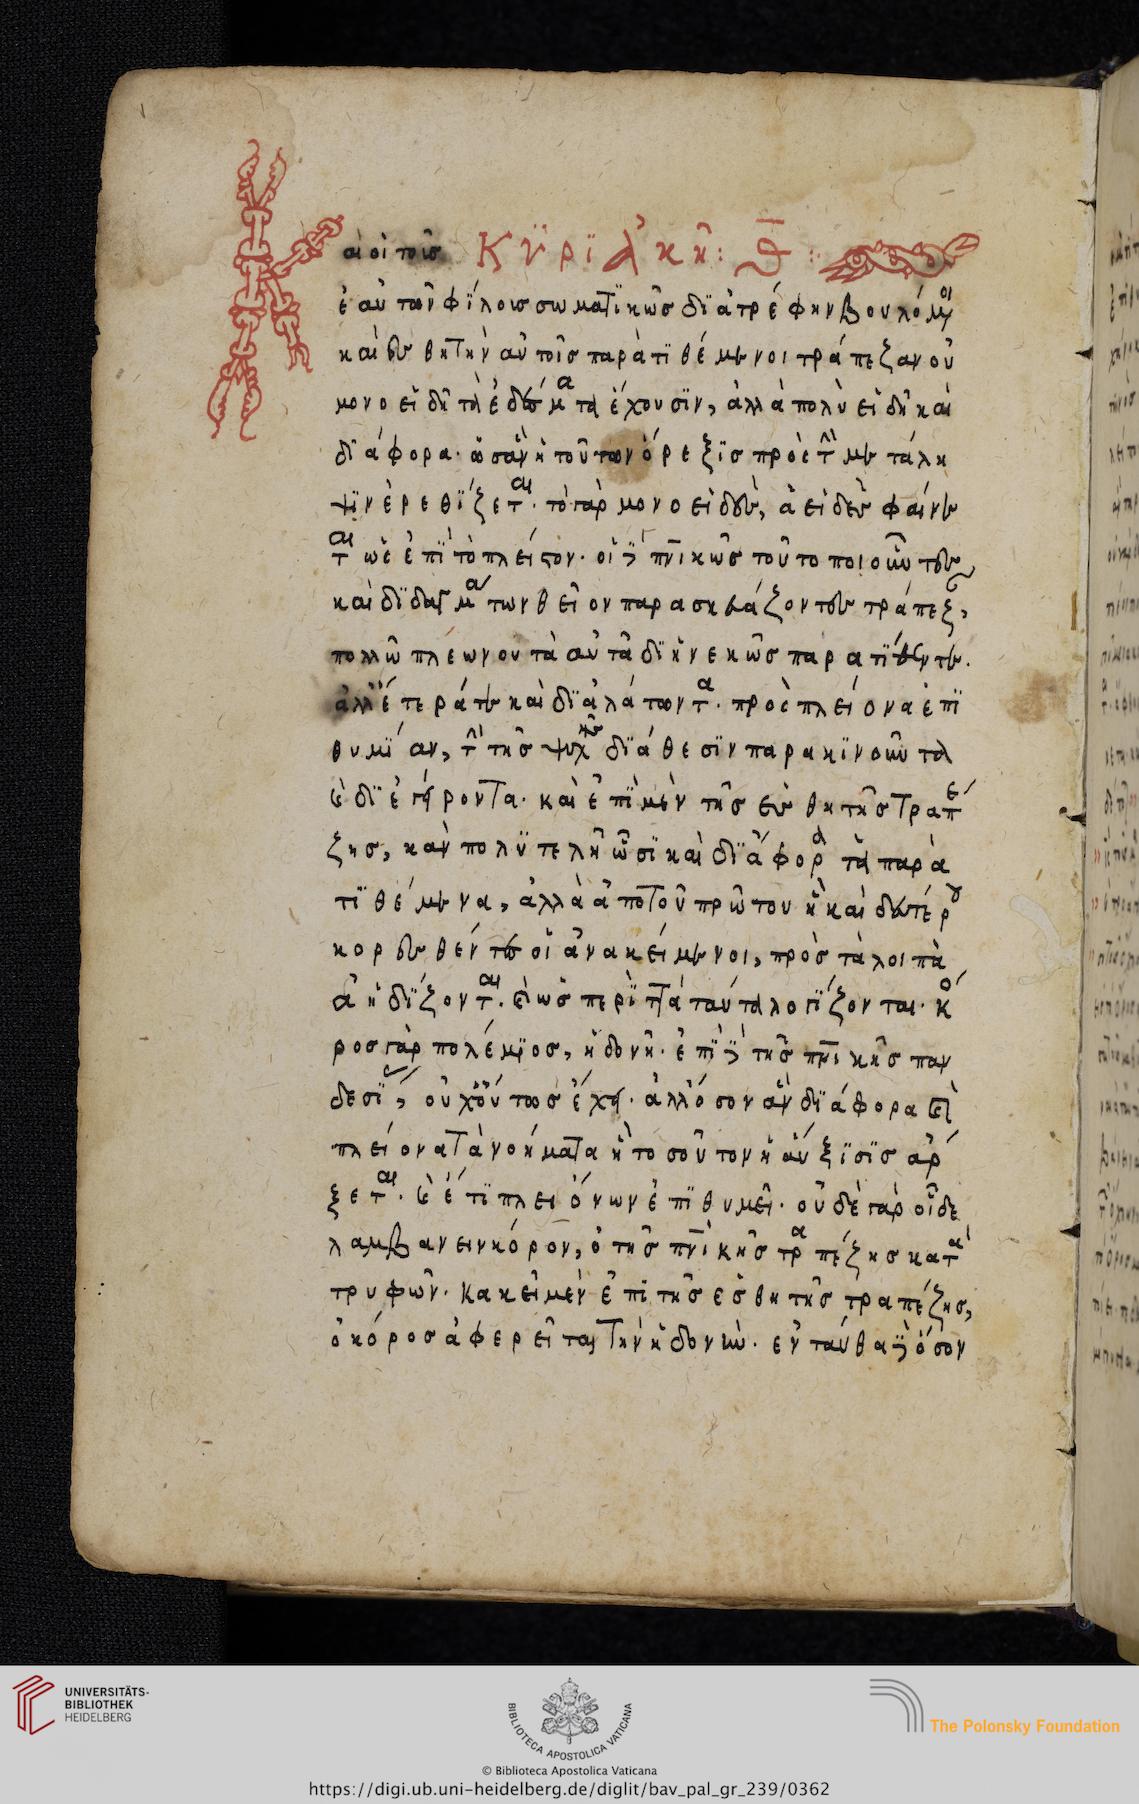 Καὶ οἱ τοῖς Κϋρϊακῆ: θ̅ :
ἑαυτῶν φίλοις σωματϊκῶς δϊατρέφην βουλόμ(εν)οι
καὶ αἰσθητὴν αὐτοῖς παρατϊθέμενοι τράπεζαν οὐ
μονοειδῆ τὰ ἐδέσματα ἔχουσϊν, ἀλλὰ πολὺ εἰδῆ καὶ
δϊάφορα· ὡσὰν ἡ τούτων ὄρεξϊς πρὸς τ(ὴν) μετάλη
ψϊν ἐρεθΐζεται· τὸ γὰρ μονοειδὲς, ἀειδὲς φαίνε
ται ὡς ἐπῒ τὸ πλεῖστον· οἱ δὲ πν̅ικῶς τοῦτο ποιοῦντες
καὶ δϊδαγμάτων θεῖον παρασκευάζοντες τράπεζ,
πολλῶ πλέων οὐ τὰ αὐτὰ δϊηνεκῶς παρατϊθέντες.
ἀλλ' ἕτεράτε καὶ δϊαλάτωντα· πρὸς πλείονα ἐπϊ
θυμΐαν, τ(ὴν) τῆς ψυχῆς δϊάθεσϊν παρακϊνοῦντα
καὶ δϊεγείροντα· καὶ ἐπῒ μὲν τῆς αἰσθητῆς τραπέ
ζης, κἂν πολϋτελῆ ὦσϊ καὶ δϊάφορα τὰ παρα
τϊθέμενα, ἀλλὰ ἀπὸ τοῦ πρώτου ἢ καὶ δευτέρου
κορεσθέντες οἱ ἀνακείμενοι, πρὸς τὰ λοιπὰ
ἀηδΐζονται. καὶ ὡς περϊττὰ ταῦτα λογΐζονται· κό
ρος γὰρ πολέμϊος, ἡδονῆ· ἐπῒ δὲ τῆς πν̅ικῆς παν
δεσΐας, οὐχ οὕτως ἔχει· ἀλλ' ὅσον ἂν δϊάφορα καὶ
πλείονα τὰ νοήματα ἢ τοσοῦτον ἡ αὔξϊσϊς ἄρ
ξεται· καὶ ἔτϊ πλειόνων ἐπϊθυμεῖ· οὐδὲ γὰρ οἶδε
λαμβανειν κόρον, ὁ τῆς πν̅ικῆς τραπέζης κατα
τρυφῶν· κακεῖ μὲν ἐπῒ τῆς ἐσθητῆς τραπέζης,
ὁ κόρος ἀφερεῖται τὴν ἡδονήν· ἐνταῦθα δὲ ὅσον
UNIVERSITÄTS-
BIBLIOTHEK
HEIDELBERG
BIBLIOTECA APOSTOLICA VATICANA
The Polonsky Foundation
© Biblioteca Apostolica Vaticana
https://digi.ub.uni-heidelberg.de/diglit/bav_pal_gr_239/0362